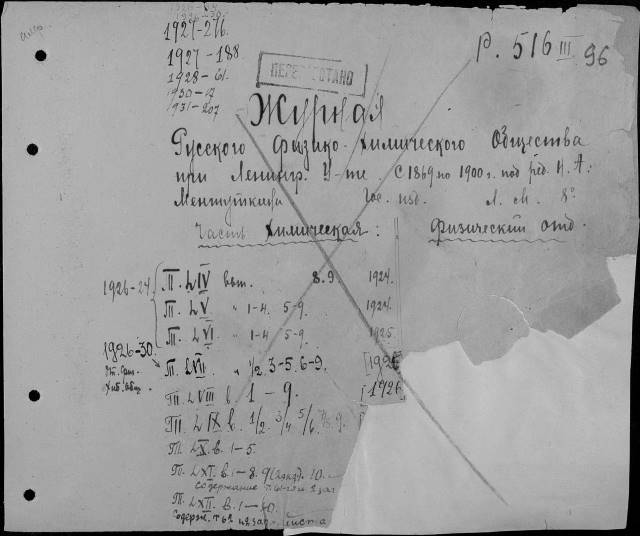 1927-276.
1927-188
1928-61.
1931-207
Р. 516 III 96
Журнал
Русского Физико-Химического Общества
при Ленингр. У-те. С 1869 по 1900 г. под ред. Н. А.
Меншуткина Гос. изд. Л. М. 8°
Часть Химическая: Физический отд.
1926-27
Т. LIV вып. 8.9. 1924.
Т. LV " 1-4. 5-9. 1924.
Т. LVI " 1-4 5-9. 1925.
1926-30.
Т. LVII " 1/2. 3-5. 6-9. [192
Т. LVIII в. 1-9. [1926
Т. LIX в. 1/2. 3/4. 5/6. 7/8. 9.
Т. LX. в. 1-5.
Т. LXI. в. 1-8. 9 10.
содержание
Т. LXII. в. 1-10.
Содерж.